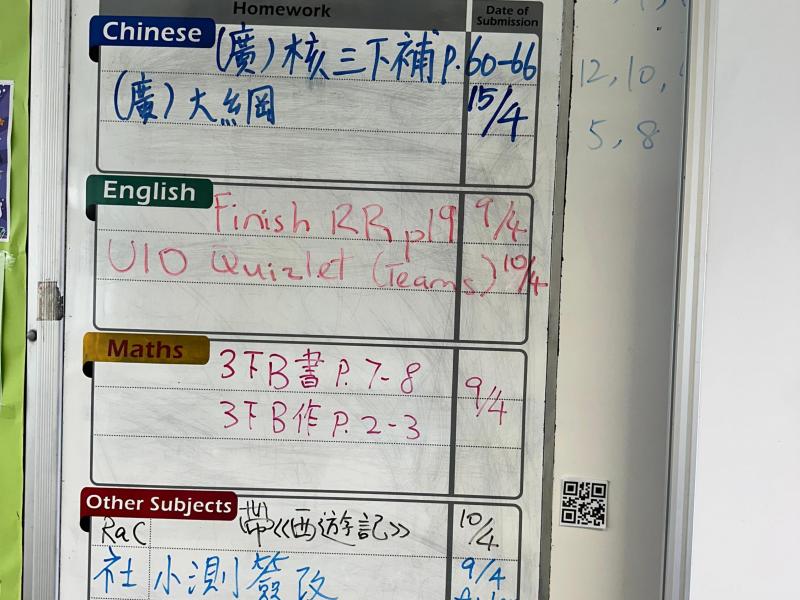 Homework Date of Submission
Chinese (廣) 核三下補 P.60-66
(廣) 大綱 15/4
English Finish RR p19 9/4
U10 Quizlet (Teams) 10/4
Maths 3下B書 P.7-8 9/4
3下B作 P.2-3
Other Subjects
RaC 帶《西遊記》 10/4
社 小測簽改 9/4
12, 10,
5, 8